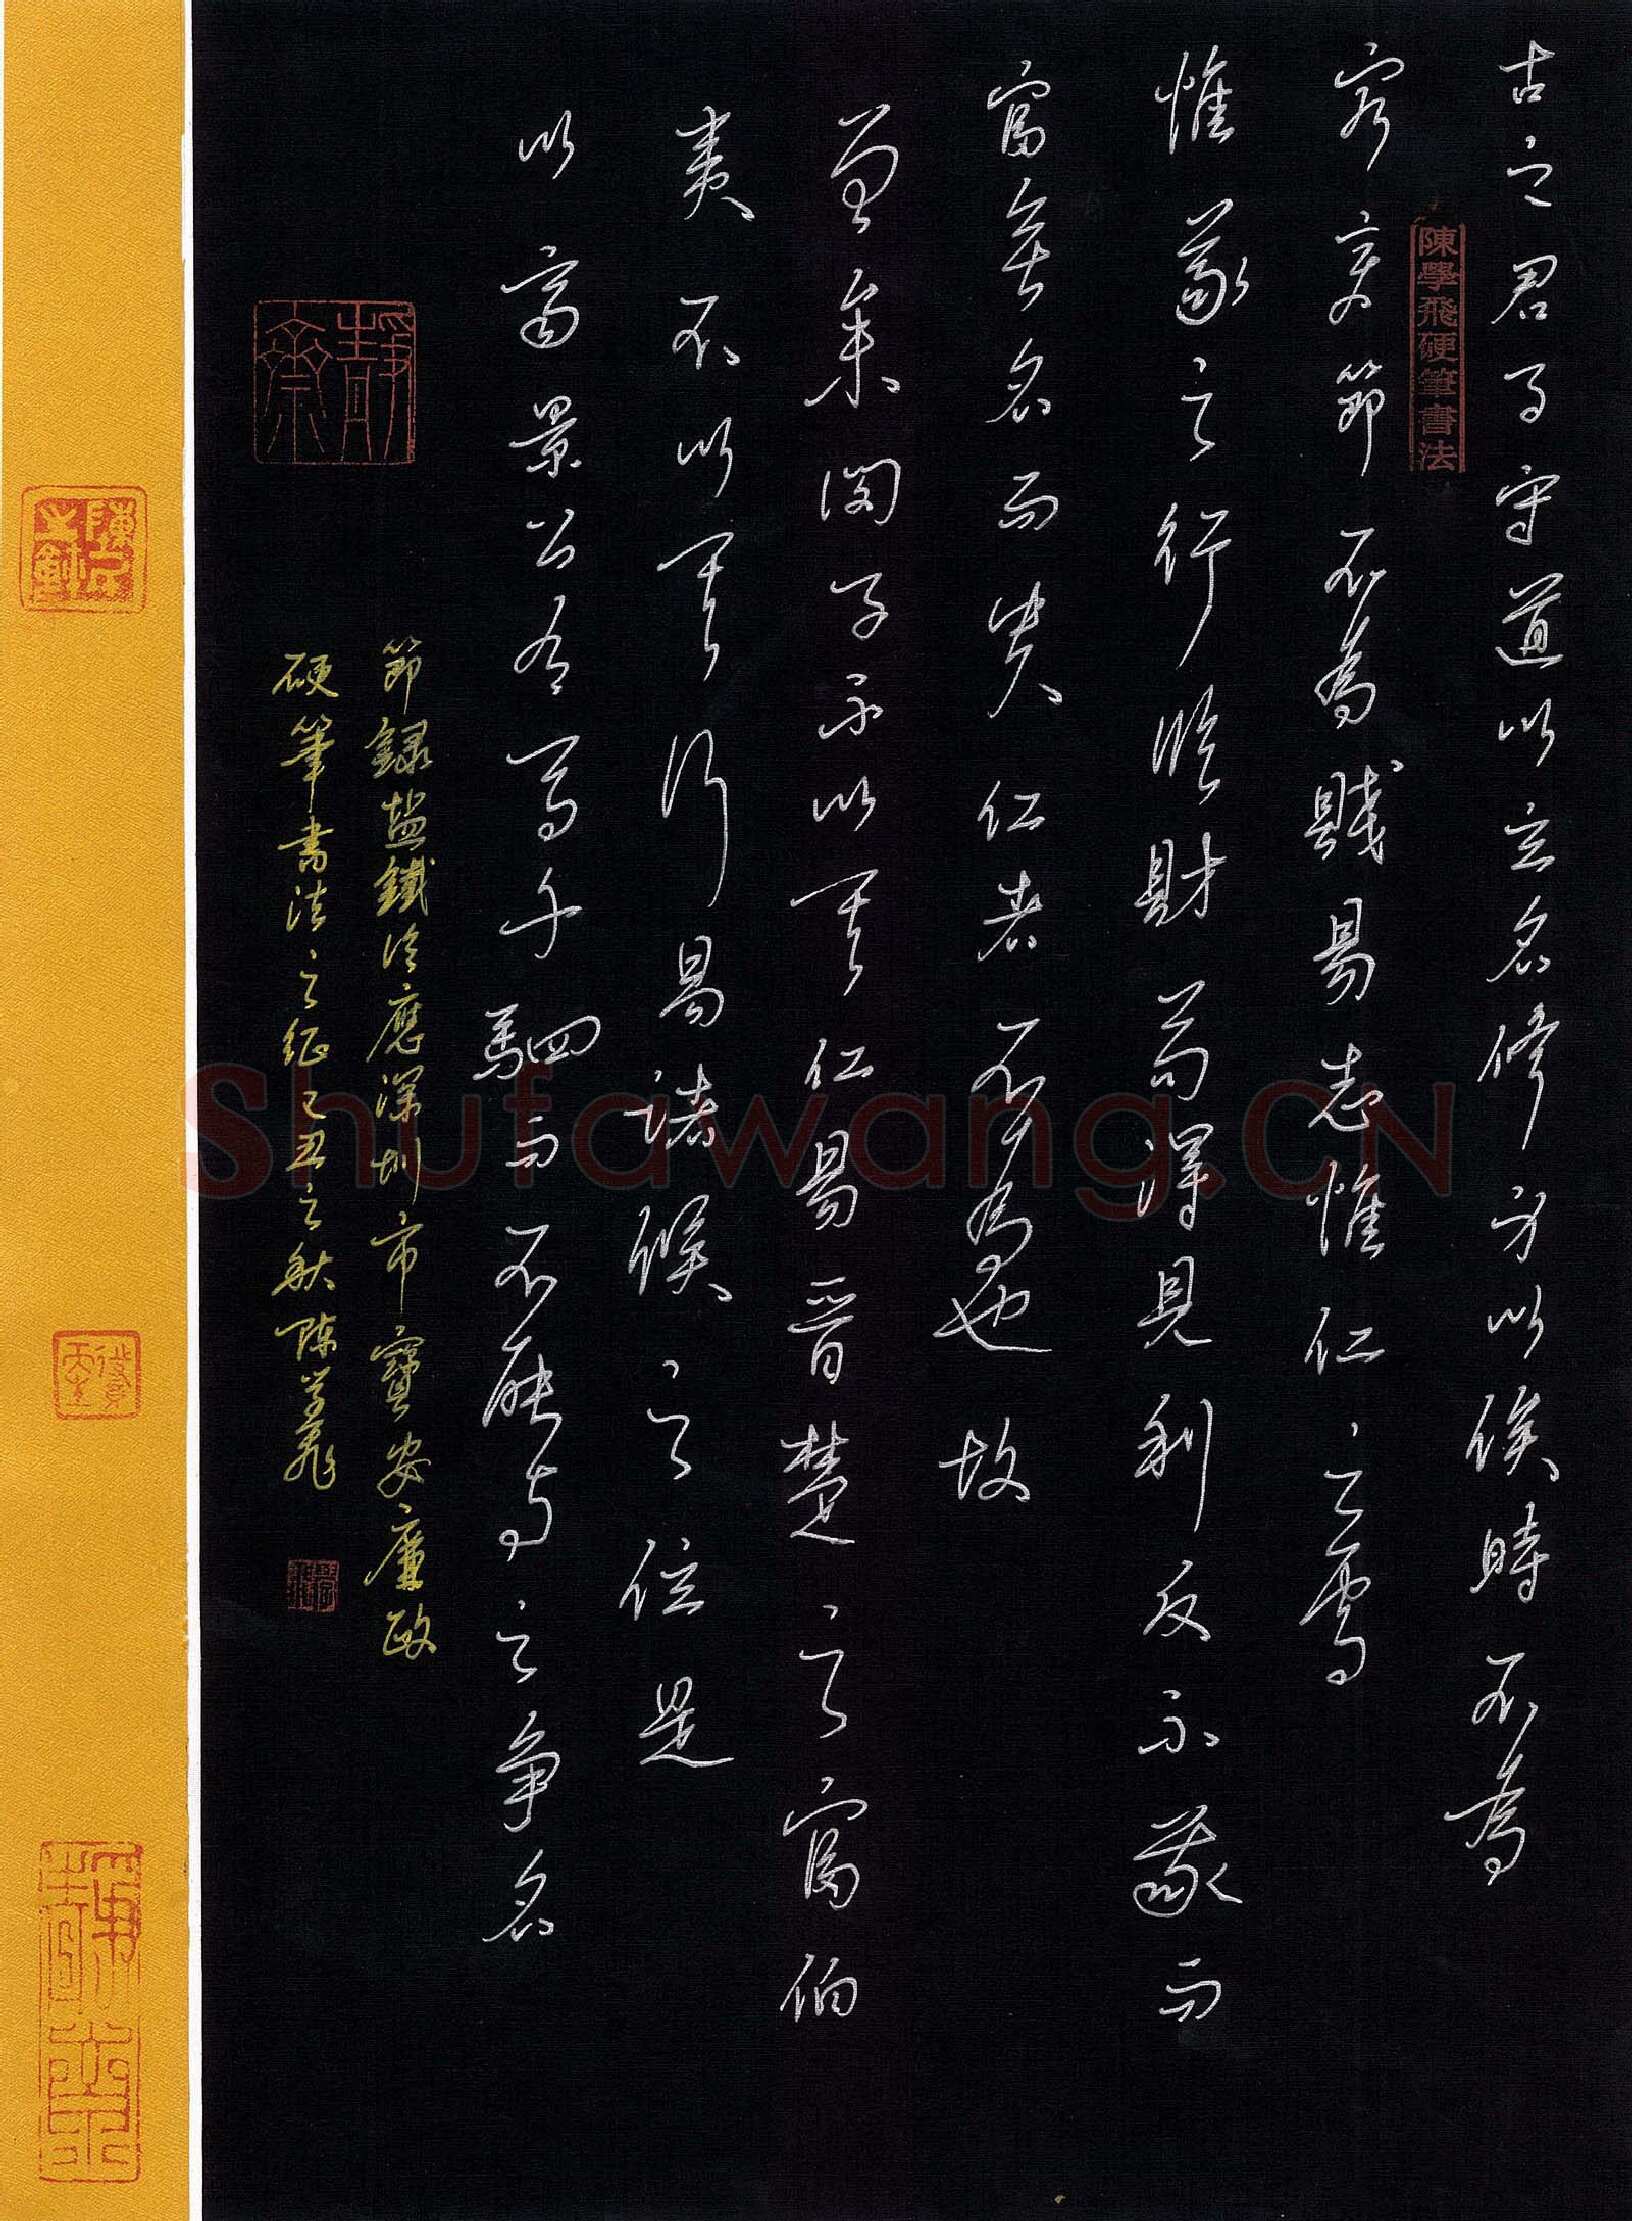 古之君子守道以立名修身以俟時不為
陳學飛硬筆書法
窮變節不為賤易志惟仁之處
惟義之行臨財苟得見利反不義而
富無名而貴仁者不為也故
曾參閔子不以其仁易晉楚之富伯
夷不以其行易諸侯之位是
以齊景公有馬千駟而不能與之爭名
節錄盐鐵论應深圳市寶安廉政
硬筆書法之征己丑之秋陳學飛
Shufawang.CN